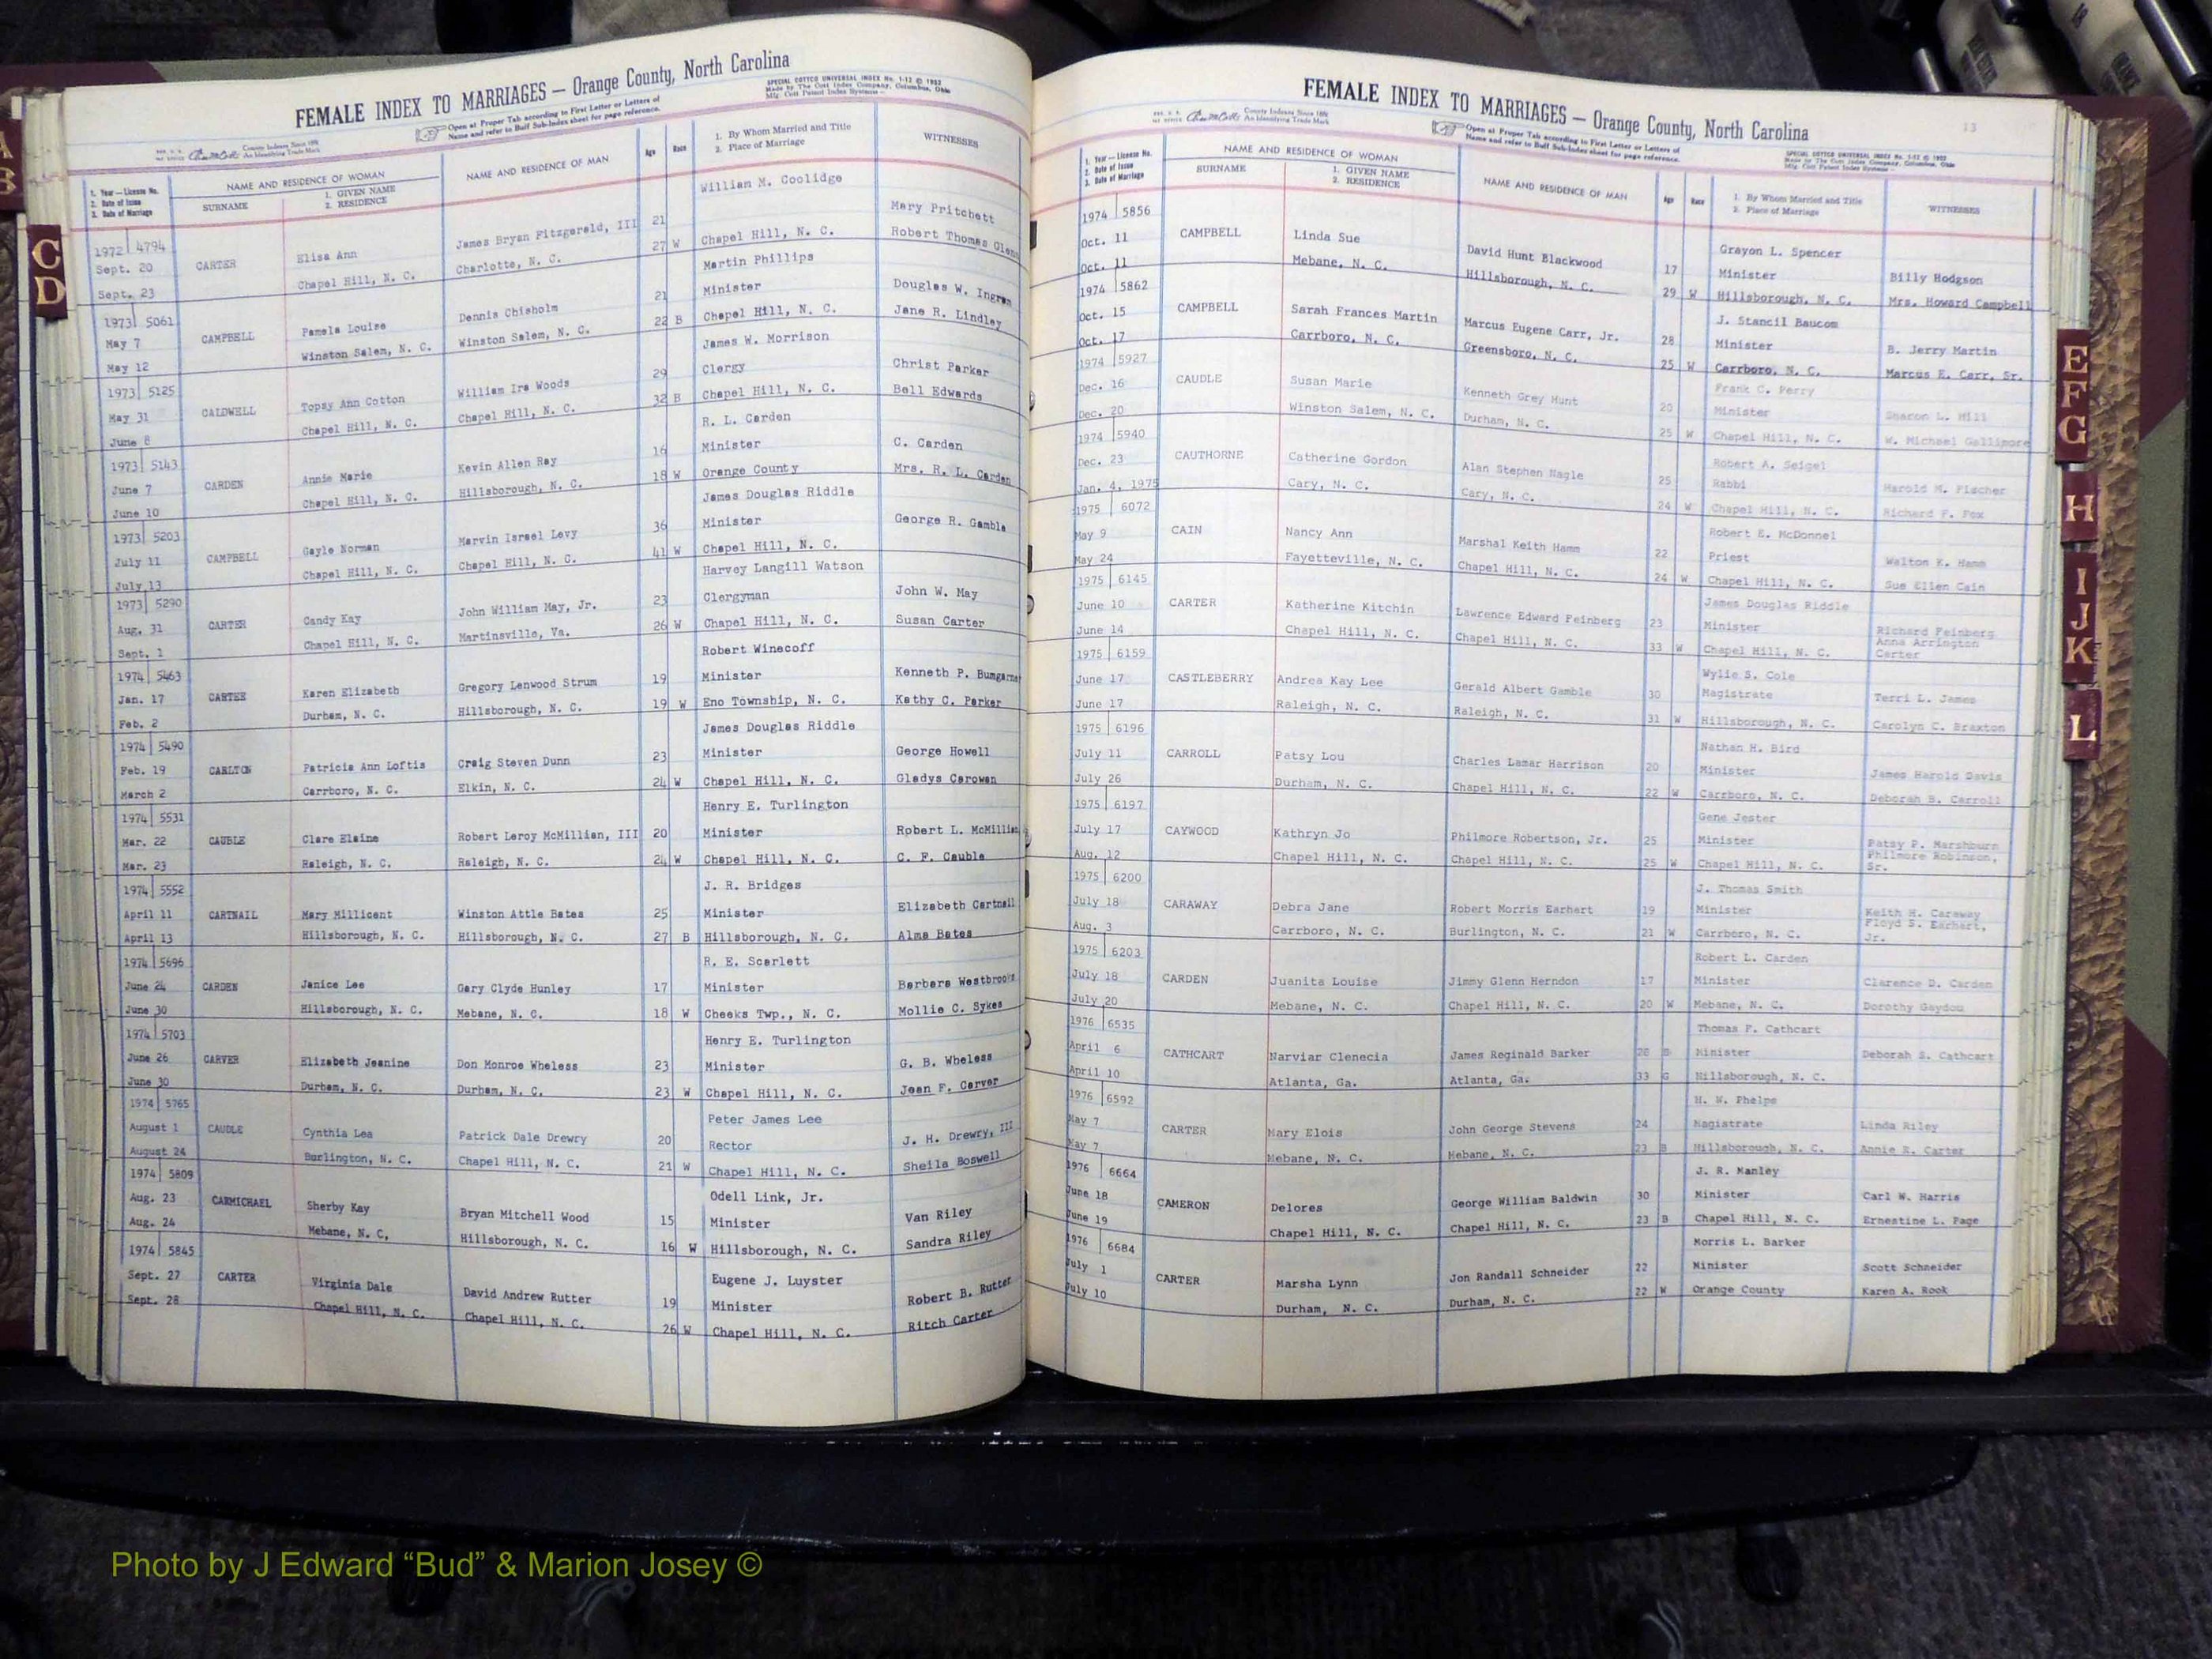 FEMALE INDEX TO MARRIAGES — Orange County, North Carolina
Open at Proper Tab according to First Letter or Letters of
Name and refer to Buff Sub-Index sheet for page reference.
SPECIAL COTTCO UNIVERSAL INDEX No. 1-12 © 1952
Made by The Cott Index Company, Columbus, Ohio
Mfg. Cott Patent Index Systems
County Indexes Since 1888
An Identifying Trade Mark
1. Year — License No.
2. Date of Issue
3. Date of Marriage
NAME AND RESIDENCE OF WOMAN
SURNAME
1. GIVEN NAME
2. RESIDENCE
NAME AND RESIDENCE OF MAN
Age
Race
1. By Whom Married and Title
2. Place of Marriage
WITNESSES
William M. Coolidge
1972 4794 James Bryan Fitzgerald, III 21 Mary Pritchett
Sept. 20 CARTER Elisa Ann 27 W Chapel Hill, N. C. Robert Thomas Glenn
Sept. 23 Chapel Hill, N. C. Charlotte, N. C.
Martin Phillips
1973 5061 Dennis Chisholm 21 Minister Douglas W. Ingram
May 7 CAMPBELL Pamela Louise 22 B Chapel Hill, N. C. Jane R. Lindley
May 12 Winston Salem, N. C. Winston Salem, N. C.
James W. Morrison
1973 5125 William Ira Woods 29 Clergy Christ Parker
May 31 CALDWELL Topsy Ann Cotton 32 B Chapel Hill, N. C. Bell Edwards
June 8 Chapel Hill, N. C. Chapel Hill, N. C.
R. L. Carden
1973 5143 Kevin Allen Ray 16 Minister C. Carden
June 7 CARDEN Annie Marie 18 W Orange County Mrs. R. L. Carden
June 10 Chapel Hill, N. C. Hillsborough, N. C.
James Douglas Riddle
1973 5203 Marvin Israel Levy 36 Minister George R. Gamble
July 11 CAMPBELL Gayle Norman 41 W Chapel Hill, N. C.
July 13 Chapel Hill, N. C. Chapel Hill, N. C.
Harvey Langill Watson
1973 5290 John William May, Jr. 23 Clergyman John W. May
Aug. 31 CARTER Candy Kay 26 W Chapel Hill, N. C. Susan Carter
Sept. 1 Chapel Hill, N. C. Martinsville, Va.
Robert Winecoff
1974 5463 Gregory Lenwood Strum 19 Minister Kenneth P. Bumgarner
Jan. 17 CARTER Karen Elizabeth 19 W Eno Township, N. C. Kathy C. Parker
Feb. 2 Durham, N. C. Hillsborough, N. C.
James Douglas Riddle
1974 5490 Craig Steven Dunn 23 Minister George Howell
Feb. 19 CARLTON Patricia Ann Loftis 24 W Chapel Hill, N. C. Gladys Carowan
March 2 Carrboro, N. C. Elkin, N. C.
Henry E. Turlington
1974 5531 Robert Leroy McMillian, III 20 Minister Robert L. McMillian
Mar. 22 CAUBLE Clare Elaine 24 W Chapel Hill, N. C. C. F. Cauble
Mar. 23 Raleigh, N. C. Raleigh, N. C.
J. R. Bridges
1974 5552 Elizabeth Cartnail
April 11 CARTNAIL Mary Millicent Winston Attle Bates 25 Minister
April 13 Hillsborough, N. C. Hillsborough, N. C. 27 B Hillsborough, N. C. Alma Bates
R. E. Scarlett
1974 5696 Barbara Westbrooks
June 24 CARDEN Janice Lee Gary Clyde Hunley 17 Minister
June 30 Hillsborough, N. C. Mebane, N. C. 18 W Cheeks Twp., N. C. Mollie C. Sykes
Henry E. Turlington
1974 5703 G. B. Wheless
June 26 CARVER Elizabeth Jeanine Don Monroe Wheless 23 Minister
June 30 Durham, N. C. Durham, N. C. 23 W Chapel Hill, N. C. Jean F. Carver
Peter James Lee
1974 5765
August 1 CAUDLE Cynthia Lea Patrick Dale Drewry 20 Rector J. H. Drewry, III
August 24 Burlington, N. C. Chapel Hill, N. C. 21 W Chapel Hill, N. C. Sheila Boswell
Odell Link, Jr.
1974 5809
Aug. 23 CARMICHAEL Sherby Kay Bryan Mitchell Wood 15 Minister Van Riley
Aug. 24 Mebane, N. C, Hillsborough, N. C. 16 W Hillsborough, N. C. Sandra Riley
Eugene J. Luyster
1974 5845
Sept. 27 CARTER Virginia Dale David Andrew Rutter 19 Minister Robert B. Rutter
Sept. 28 Chapel Hill, N. C. Chapel Hill, N. C. 26 W Chapel Hill, N. C. Ritch Carter
C
D
FEMALE INDEX TO MARRIAGES — Orange County, North Carolina
13
County Indexes Since 1888
An Identifying Trade Mark
Open at Proper Tab according to First Letter or Letters of
Name and refer to Buff Sub-Index sheet for page reference.
SPECIAL COTTCO UNIVERSAL INDEX No. 1-12 © 1952
Made by The Cott Index Company, Columbus, Ohio
Mfg. Cott Patent Index Systems
1. Year — License No.
2. Date of Issue
3. Date of Marriage
NAME AND RESIDENCE OF WOMAN
SURNAME
1. GIVEN NAME
2. RESIDENCE
NAME AND RESIDENCE OF MAN
Age
Race
1. By Whom Married and Title
2. Place of Marriage
WITNESSES
1974 5856 Grayon L. Spencer
Oct. 11 CAMPBELL Linda Sue David Hunt Blackwood 17 Minister Billy Hodgson
Oct. 11 Mebane, N. C. Hillsborough, N. C. 29 W Hillsborough, N. C. Mrs. Howard Campbell
1974 5862 J. Stancil Baucom
Oct. 15 CAMPBELL Sarah Frances Martin Marcus Eugene Carr, Jr. 28 Minister B. Jerry Martin
Oct. 17 Carrboro, N. C. Greensboro, N. C. 25 W Carrboro, N. C. Marcus E. Carr, Sr.
1974 5927 Frank C. Perry
Dec. 16 CAUDLE Susan Marie Kenneth Grey Hunt 20 Minister Sharon L. Hill
Dec. 20 Winston Salem, N. C. Durham, N. C. 25 W Chapel Hill, N. C. W. Michael Gallimore
1974 5940 Robert A. Seigel
Dec. 23 CAUTHORNE Catherine Gordon Alan Stephen Nagle 25 Rabbi Harold M. Fischer
Jan. 4, 1975 Cary, N. C. Cary, N. C. 24 W Chapel Hill, N. C. Richard F. Fox
1975 6072 Robert E. McDonnel
May 9 CAIN Nancy Ann Marshal Keith Hamm 22 Priest Walton K. Hamm
May 24 Fayetteville, N. C. Chapel Hill, N. C. 24 W Chapel Hill, N. C. Sue Ellen Cain
1975 6145 James Douglas Riddle
June 10 CARTER Katherine Kitchin Lawrence Edward Feinberg 23 Minister Richard Feinberg
June 14 Chapel Hill, N. C. Chapel Hill, N. C. 33 W Chapel Hill, N. C. Anna Arrington
Carter
1975 6159 Wylie S. Cole
June 17 CASTLEBERRY Andrea Kay Lee Gerald Albert Gamble 30 Magistrate Terri L. James
June 17 Raleigh, N. C. Raleigh, N. C. 31 W Hillsborough, N. C. Carolyn C. Braxton
1975 6196 Nathan H. Bird
July 11 CARROLL Patsy Lou Charles Lamar Harrison 20 Minister James Harold Davis
July 26 Durham, N. C. Chapel Hill, N. C. 22 W Carrboro, N. C. Deborah B. Carroll
1975 6197 Gene Jester
July 17 CAYWOOD Kathryn Jo Philmore Robertson, Jr. 25 Minister Patsy P. Marshburn
Aug. 12 Chapel Hill, N. C. Chapel Hill, N. C. 25 W Chapel Hill, N. C. Philmore Robinson,
Sr.
1975 6200 J. Thomas Smith
July 18 CARAWAY Debra Jane Robert Morris Earhart 19 Minister Keith H. Caraway
Aug. 3 Carrboro, N. C. Burlington, N. C. 21 W Carrboro, N. C. Floyd S. Earhart,
Jr.
1975 6203 Robert L. Carden
July 18 CARDEN Juanita Louise Jimmy Glenn Herndon 17 Minister Clarence D. Carden
July 20 Mebane, N. C. Chapel Hill, N. C. 20 W Mebane, N. C. Dorothy Gaydou
1976 6535 Thomas F. Cathcart
April 6 CATHCART Narviar Clenecia James Reginald Barker 28 B Minister Deborah S. Cathcart
April 10 Atlanta, Ga. Atlanta, Ga. 33 G Hillsborough, N. C.
1976 6592 H. W. Phelps
May 7 CARTER Mary Elois John George Stevens 24 Magistrate Linda Riley
May 7 Mebane, N. C. Mebane, N. C. 23 B Hillsborough, N. C. Annie R. Carter
1976 6664 J. R. Manley
June 18 CAMERON Delores George William Baldwin 30 Minister Carl W. Harris
June 19 Chapel Hill, N. C. Chapel Hill, N. C. 23 B Chapel Hill, N. C. Ernestine L. Page
1976 6684 Morris L. Barker
July 1 CARTER Marsha Lynn Jon Randall Schneider 22 Minister Scott Schneider
July 10 Durham, N. C. Durham, N. C. 22 W Orange County Karen A. Rook
E
F
G
H
I
J
K
L
Photo by J Edward “Bud” & Marion Josey ©